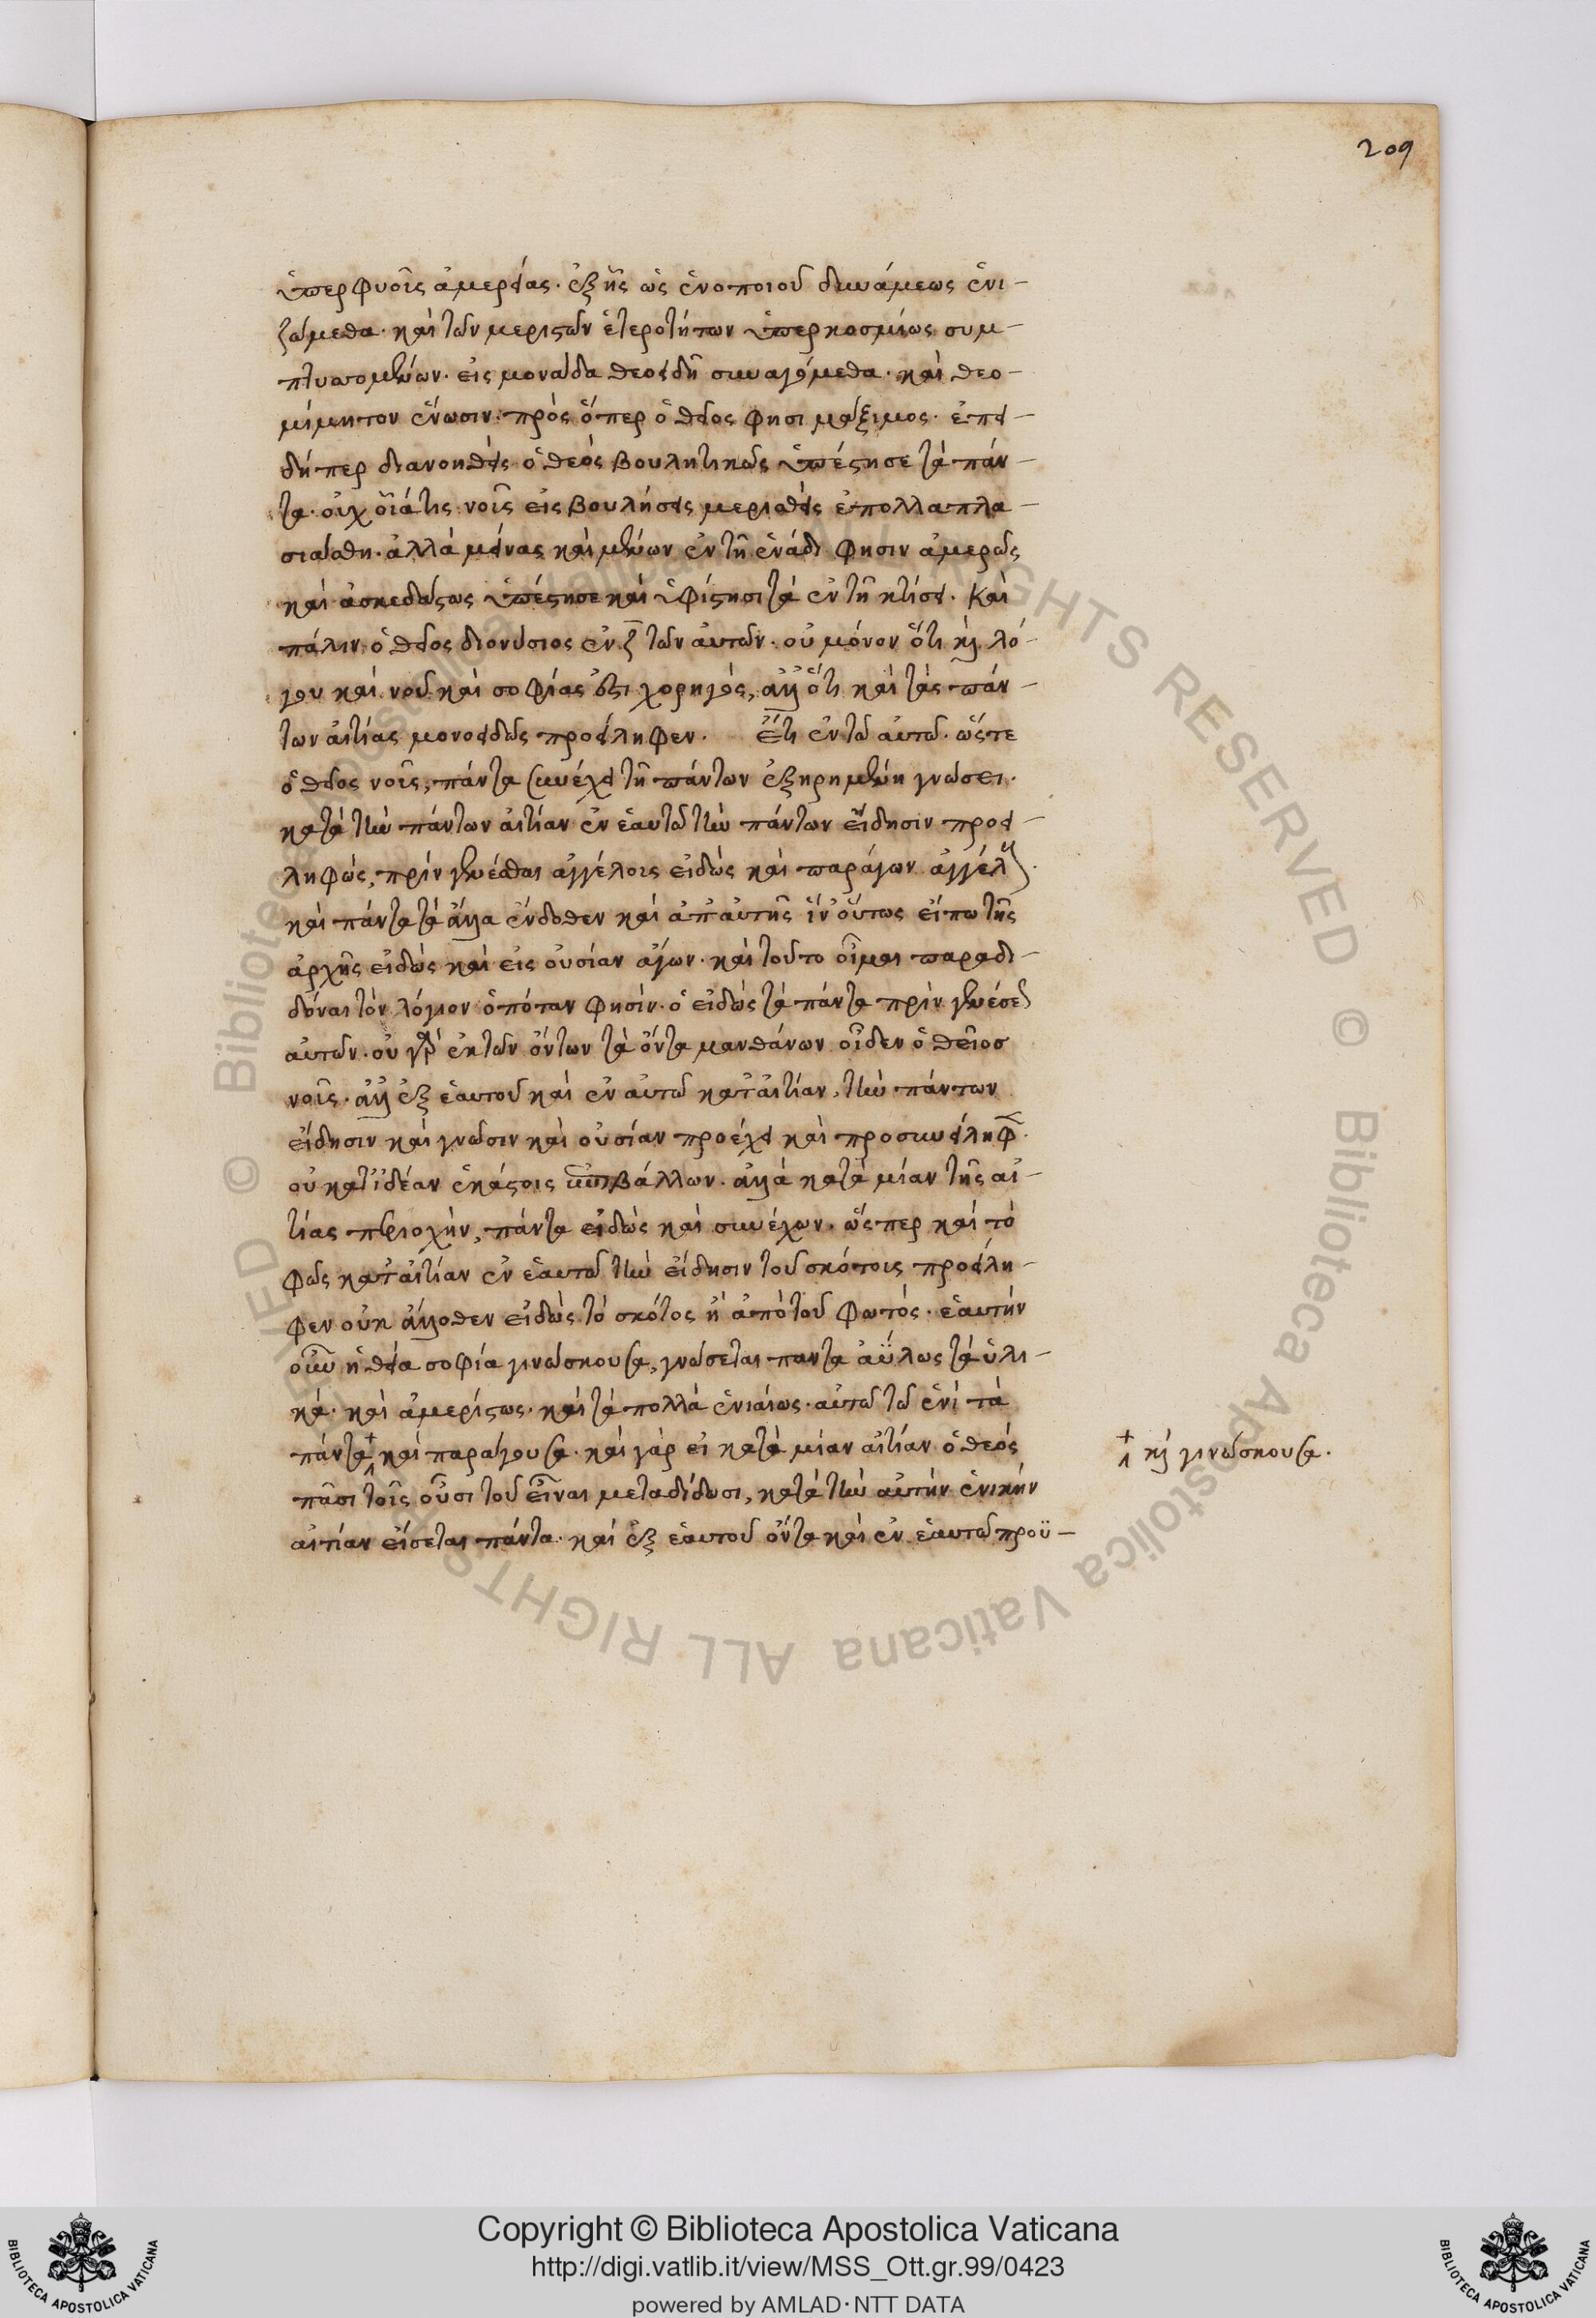 209
ὑπερφυοῦς ἀμερείας. ἐξ ἧς ὡς ἑνοποιοῦ δυνάμεως ἑνι-
ζόμεθα. καὶ τῶν μεριστῶν ἑτεροτήτων ὑπερκοσμίως συμ-
πτυσσομένων. εἰς μονάδα θεοειδῆ συναγόμεθα. καὶ θεο-
μίμητον ἕνωσιν. πρὸς ὅπερ ὁ θεῖος φησι μάξιμος. ἐπει-
δήπερ διανοηθεὶς ὁ θεὸς βουλητικῶς ὑπέστησε τὰ πάν-
τα. οὐχ οἷά τις νοῦς εἰς βουλήσεις μερισθεὶς ἐπολλαπλα-
σιάσθη. ἀλλὰ μείνας καὶ μένων ἐν τῆ ἑνάδι φησιν ἀμερῶς
καὶ ἀσκεδάστως ὑπέστησε καὶ ὑφίστησι τὰ ἐν τῆ κτίσει. Καὶ
πάλιν ὁ θεῖος διονύσιος ἐν ζ τῶν αὐτῶν. οὐ μόνον ὅτι καὶ λό-
γου καὶ νοῦ καὶ σοφίας ἐστι χορηγός, ἀλλ' ὅτι καὶ τὰς πάν-
των αἰτίας μονοειδῶς προείληφεν. Ἔτι ἐν τῶ αὐτῶ. ὥστε
ὁ θεῖος νοῦς, πάντα συνέχει τῆ πάντων ἐξηρημένη γνώσει.
κατὰ τὴν πάντων αἰτίαν ἐν ἑαυτῶ τὴν πάντων εἴδησιν προει-
ληφώς, πρὶν γενέσθαι ἀγγέλους εἰδὼς καὶ παράγων ἀγγέλους.
καὶ πάντα τὰ ἄλλα ἔνδοθεν καὶ ἀπ' αὐτῆς ἵν' οὕτως εἴπω τῆς
ἀρχῆς εἰδὼς καὶ εἰς οὐσίαν ἄγων. καὶ τοῦτο οἶμαι παραδι-
δόναι τὸν λόγιον ὁπόταν φησίν. ὁ εἰδὼς τὰ πάντα πρὶν γενέσεως
αὐτῶν. οὐ γὰρ ἐκ τῶν ὄντων τὰ ὄντα μανθάνων οἶδεν ὁ θεῖοσ
νοῦς. ἀλλ' ἐξ ἑαυτοῦ καὶ ἐν αὐτῶ κατ' αἰτίαν, τὴν πάντων
εἴδησιν καὶ γνῶσιν καὶ οὐσίαν προέχει καὶ προσυνείληφε.
οὐ κατ' ἰδέαν ἑκάστοις ἐπιβάλλων. ἀλλὰ κατὰ μίαν τῆς αἰ-
τίας περιοχὴν, πάντα εἰδὼς καὶ συνέχων. ὥσπερ καὶ τὸ
φῶς κατ' αἰτίαν ἐν ἑαυτῶ τὴν εἴδησιν τοῦ σκότους προείλη-
φεν οὐκ ἄλλοθεν εἰδὼς τὸ σκότος ἢ ἀπὸ τοῦ φωτός. ἑαυτὴν
οὖν ἡ θεία σοφία γινώσκουσα, γνώσεται παντα ἀΰλως τὰ ὑλι-
κά. καὶ ἀμερίστως. καὶ τὰ πολλὰ ἑνιαίως. αὐτῶ τῶ ἑνὶ τὰ
πάντα καὶ παράγουσα. καὶ γὰρ εἰ κατὰ μίαν αἰτίαν ὁ θεὸς
+ καὶ γινώσκουσα.
πᾶσι τοῖς οὖσι τοῦ εἶναι μεταδίδωσι, κατὰ τὴν αὐτὴν ἑνικὴν
αἰτίαν εἴσεται πάντα. καὶ ἐξ ἑαυτοῦ ὄντα καὶ ἐν ἑαυτῶ προϋ-
© Biblioteca Apostolica Vaticana ALL RIGHTS RESERVED
BIBLIOTECA APOSTOLICA VATICANA
Copyright © Biblioteca Apostolica Vaticana
http://digi.vatlib.it/view/MSS_Ott.gr.99/0423
powered by AMLAD·NTT DATA
BIBLIOTECA APOSTOLICA VATICANA